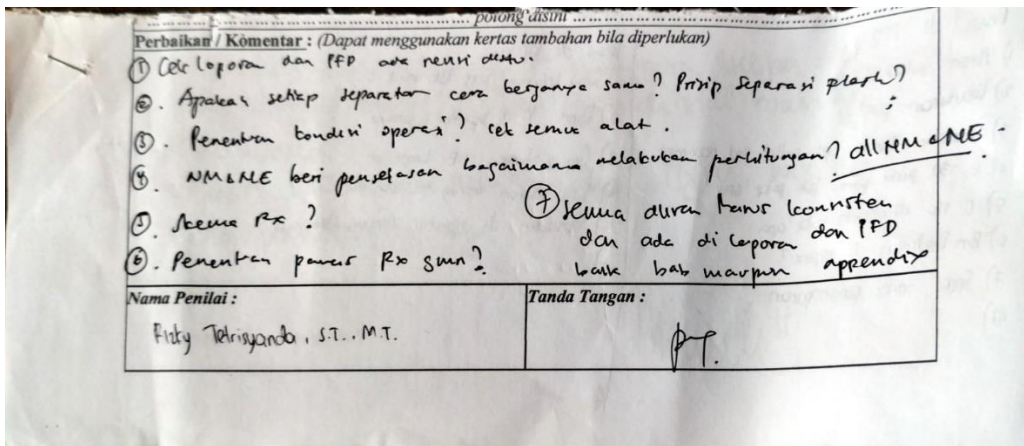 potong disini
Perbaikan / Komentar : (Dapat menggunakan kertas tambahan bila diperlukan)
① Cek laporan dan PFD ada revisi disitu.
②. Apakah setiap separator cara kerjanya sama? Prisip separasi
③. Penentuan kondisi operasi? cek semua alat.
④. NM & NE beri penjelasan bagaimana melakukan perhitungan? all NM & NE.
⑤. Skema Rx?
⑥. Penentuan panas Rx gmn?
⑦ semua aliran harus konsisten
dan ada di laporan dan PFD
baik bab maupun appendix
Nama Penilai :
Rizky Tetrisyanda, S.T., M.T.
Tanda Tangan :